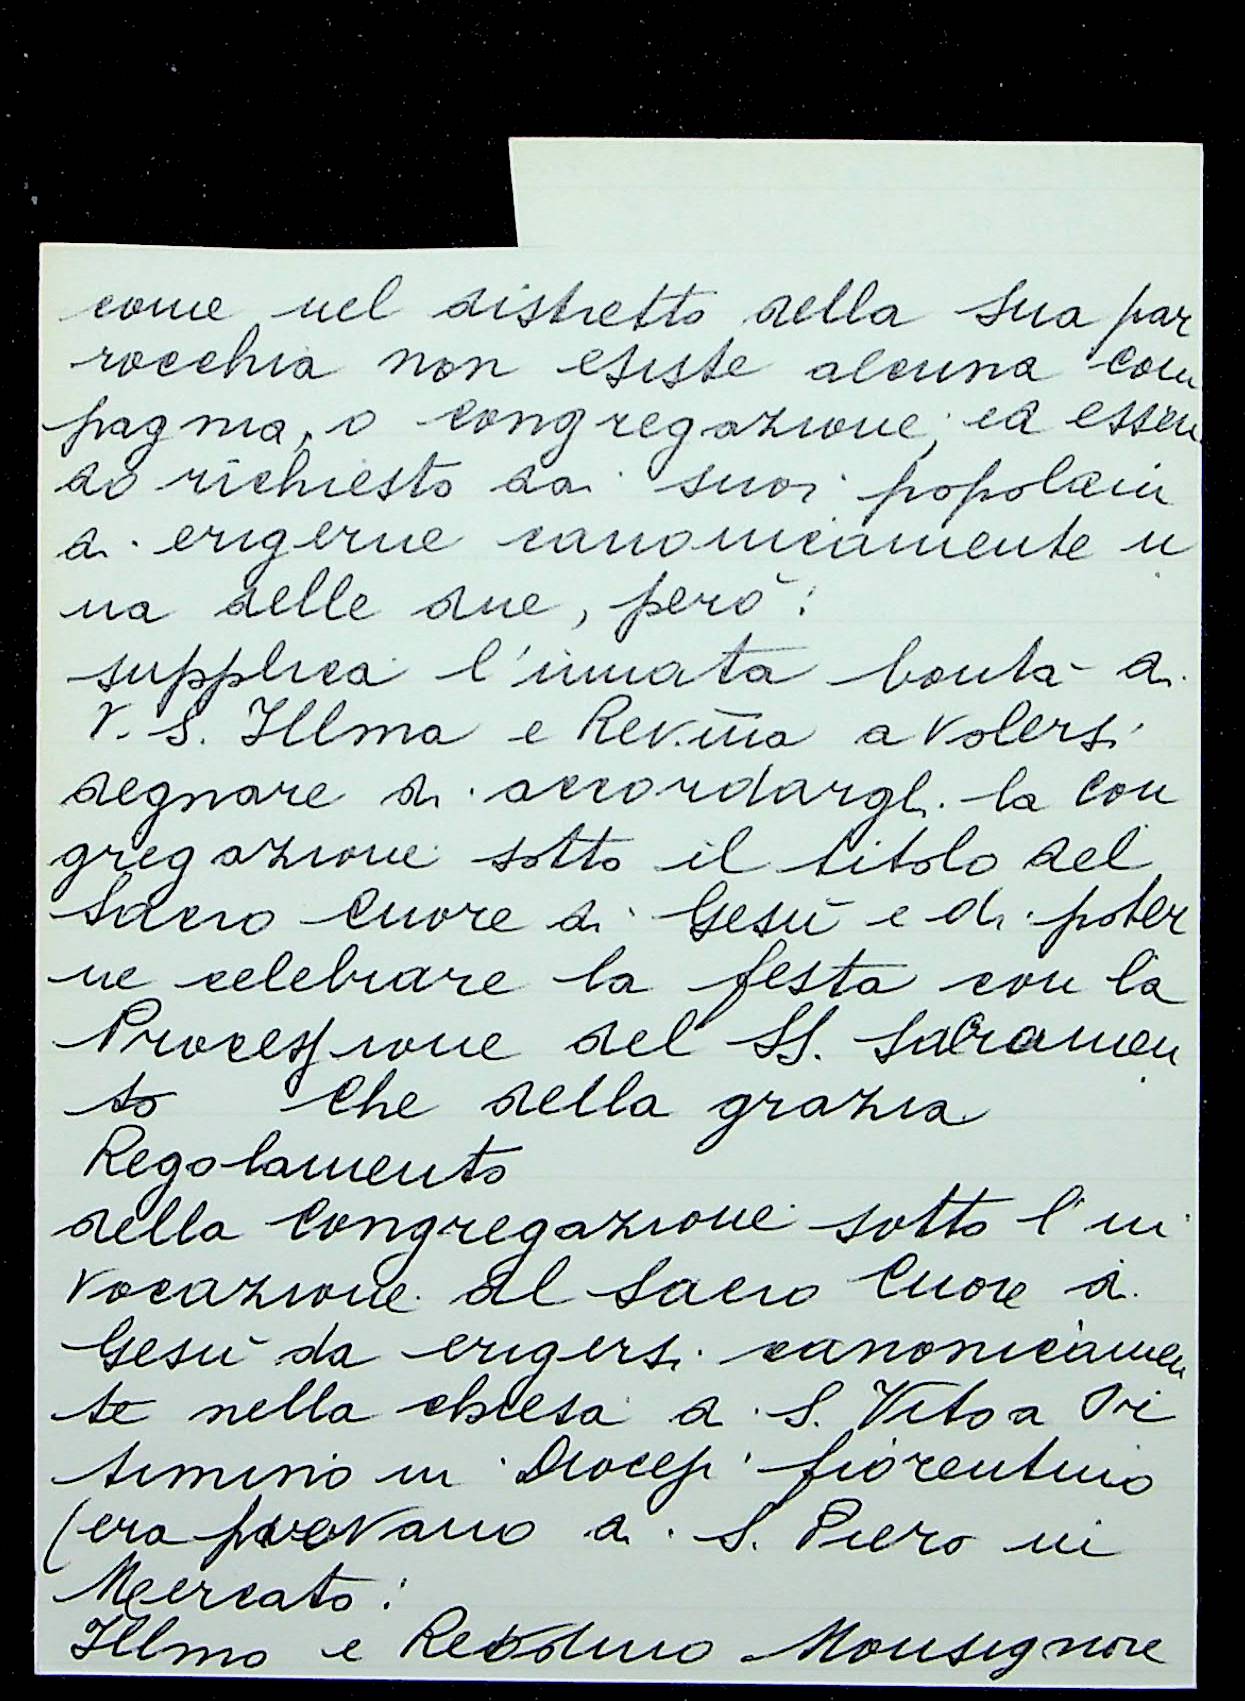 come nel distretto della sua par
rocchia non esiste alcuna com
pagnia, o congregazione, ed essen
do richiesto dai suoi popolani
di erigerne canonicamente u
na delle due, però:
supplica l'innata bontà di
V. S. Illma e Rev.ma a volersi
degnare di accordargli la con
gregazione sotto il titolo del
Sacro Cuore di Gesù e di poter
ne celebrare la festa con la
Processione del SS. Sacramen
to Che della grazia
Regolamento
della Congregazione sotto l'in
vocazione al Sacro Cuore di
Gesù da erigersi canonicamen
te nella chiesa di S. Vito a
in Diocesi fiorentina
(era di S. Piero in
Mercato:
Illmo e Monsignore